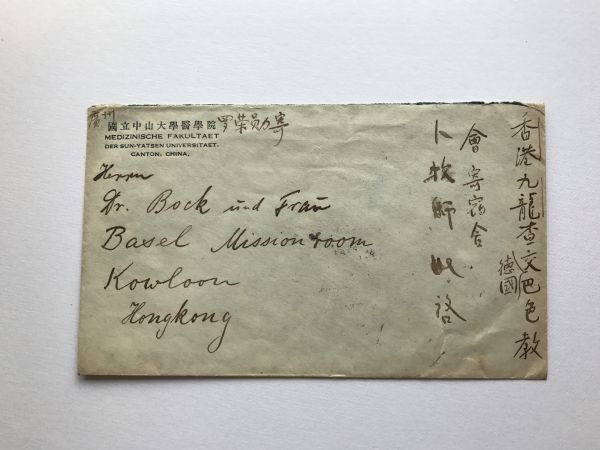 廣州
國立中山大學醫學院 罗荣勋寄
MEDIZINISCHE FAKULTAET
DER SUN-YATSEN UNIVERSITAET.
CANTON, CHINA.
Herrn
Dr. Bock und Frau
Basel Mission room
Kowloon
Hongkong
香港九龍查交巴色教
德國
會寄宿舍
卜牧師 啓